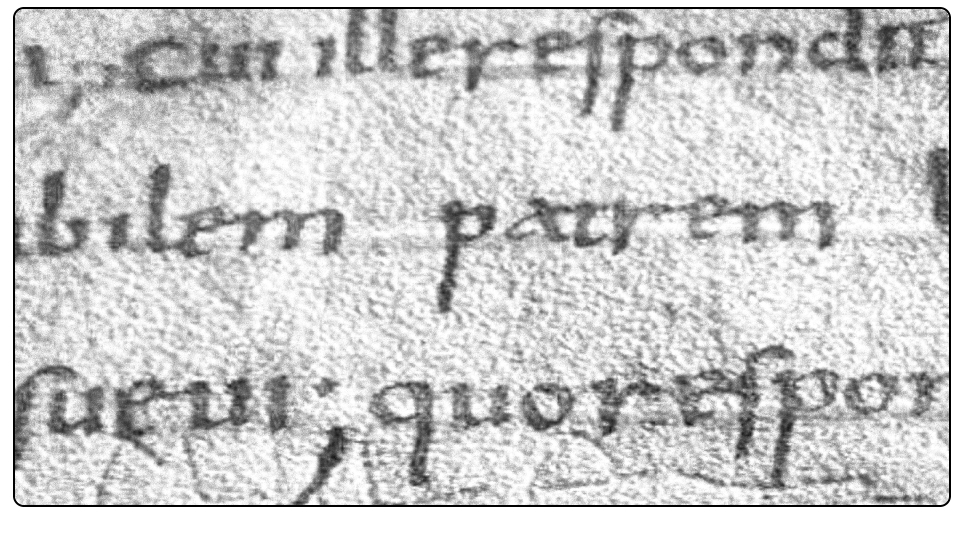 cui illerespond&
bilem patrem
sueui; quorespon